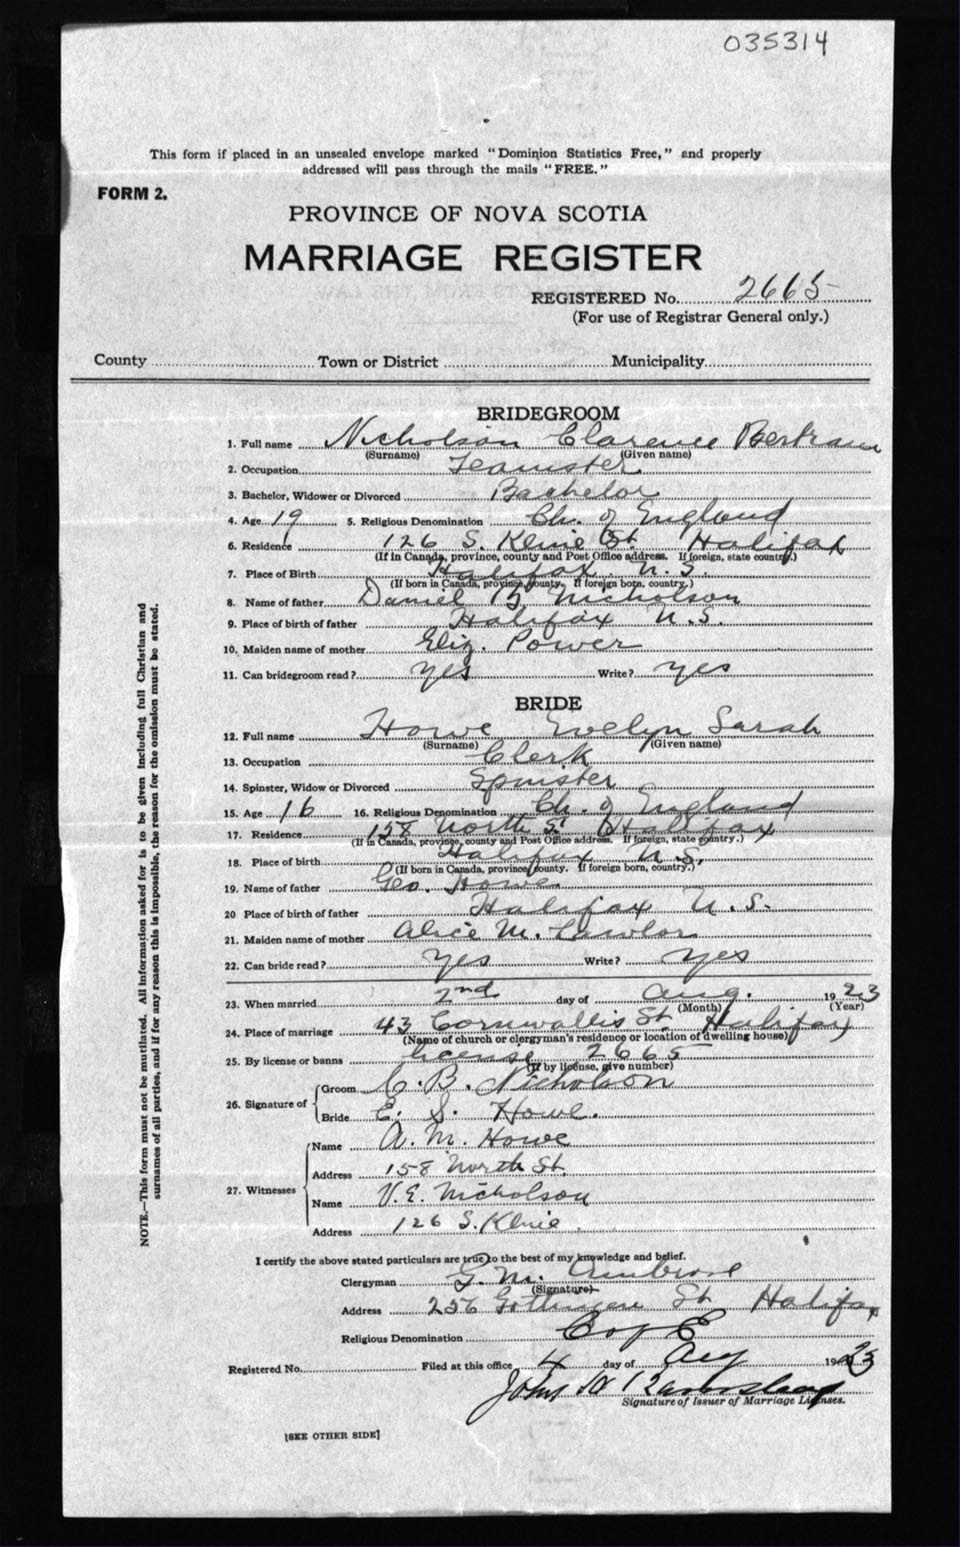 035314
This form if placed in an unsealed envelope marked "Dominion Statistics Free," and properly
addressed will pass through the mails "FREE."
FORM 2.
PROVINCE OF NOVA SCOTIA
MARRIAGE REGISTER
REGISTERED No. 2665
(For use of Registrar General only.)
County Town or District Municipality
BRIDEGROOM
1. Full name Nicholson Clarence Bertram
(Surname) (Given name)
2. Occupation Teamster
3. Bachelor, Widower or Divorced Bachelor
4. Age 19 5. Religious Denomination Ch. of England
6. Residence 126 S. Kline St. Halifax
(If in Canada, province, county and Post Office address. If foreign, state country.)
7. Place of Birth Halifax N.S.
(If born in Canada, province, county. If foreign born, country.)
8. Name of father Daniel B Nicholson
9. Place of birth of father Halifax N.S.
10. Maiden name of mother Eliz. Power
11. Can bridegroom read? yes Write? yes
BRIDE
12. Full name Howe Evelyn Sarah
(Surname) (Given name)
13. Occupation Clerk
14. Spinster, Widow or Divorced Spinster
15. Age 16 16. Religious Denomination Ch. of England
17. Residence 158 North St Halifax
(If in Canada, province, county and Post Office address. If foreign, state country.)
18. Place of birth Halifax N.S.
(If born in Canada, province, county. If foreign born, country.)
19. Name of father Geo. Howe
20 Place of birth of father Halifax N.S.
21. Maiden name of mother Alice M. Lawlor
22. Can bride read? yes Write? yes
23. When married 2nd day of Aug. 1923
(Month) (Year)
24. Place of marriage 43 Cornwallis St. Halifax
(Name of church or clergyman's residence or location of dwelling house)
25. By license or banns license 2665
(If by license, give number)
26. Signature of Groom C. B. Nicholson
Bride E. S. Howe.
27. Witnesses Name A. M. Howe
Address 158 North St.
Name V. E. Nicholson
Address 126 S. Kline
I certify the above stated particulars are true to the best of my knowledge and belief.
Clergyman G. M. Ambrose
(Signature)
Address 256 Gottingen St. Halifax
Religious Denomination C of E
Registered No. Filed at this office 4 day of Aug 1923
John
Signature of Issuer of Marriage Licenses.
[SEE OTHER SIDE]
NOTE.—This form must not be mutilated. All information asked for is to be given including full Christian and
surnames of all parties, and if for any reason this is impossible, the reason for the omission must be stated.